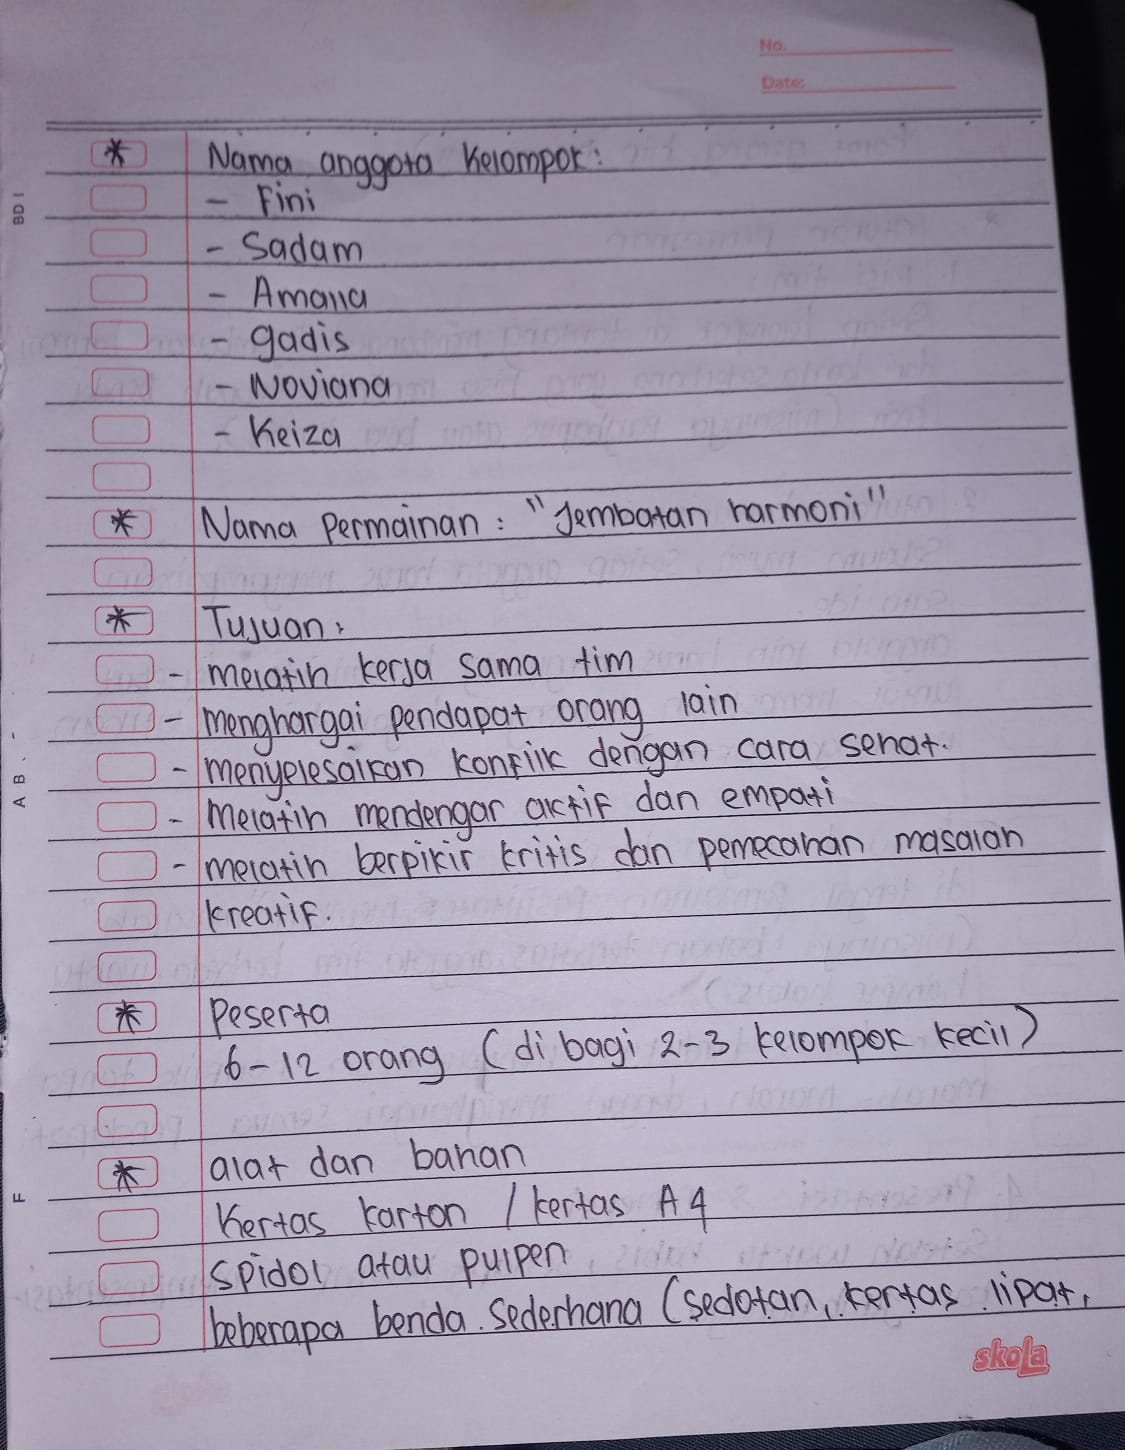 No.
Date:
* Nama anggota Kelompok :
- Fini
- Sadam
- Amalia
- gadis
- Noviana
- Keiza
* Nama Permainan : "Jembatan harmoni"
* Tujuan :
- melatih kerja sama tim
- menghargai pendapat orang lain
- menyelesaikan konflik dengan cara sehat.
- Melatih mendengar aktif dan empati
- melatih berpikir kritis dan pemecahan masalah
kreatif.
* Peserta
6-12 orang (di bagi 2-3 kelompok kecil)
* alat dan bahan
Kertas karton / kertas A4
Spidol atau pulpen
beberapa benda. Sederhana (sedotan, kertas lipat,
skola
BD I
A B
F